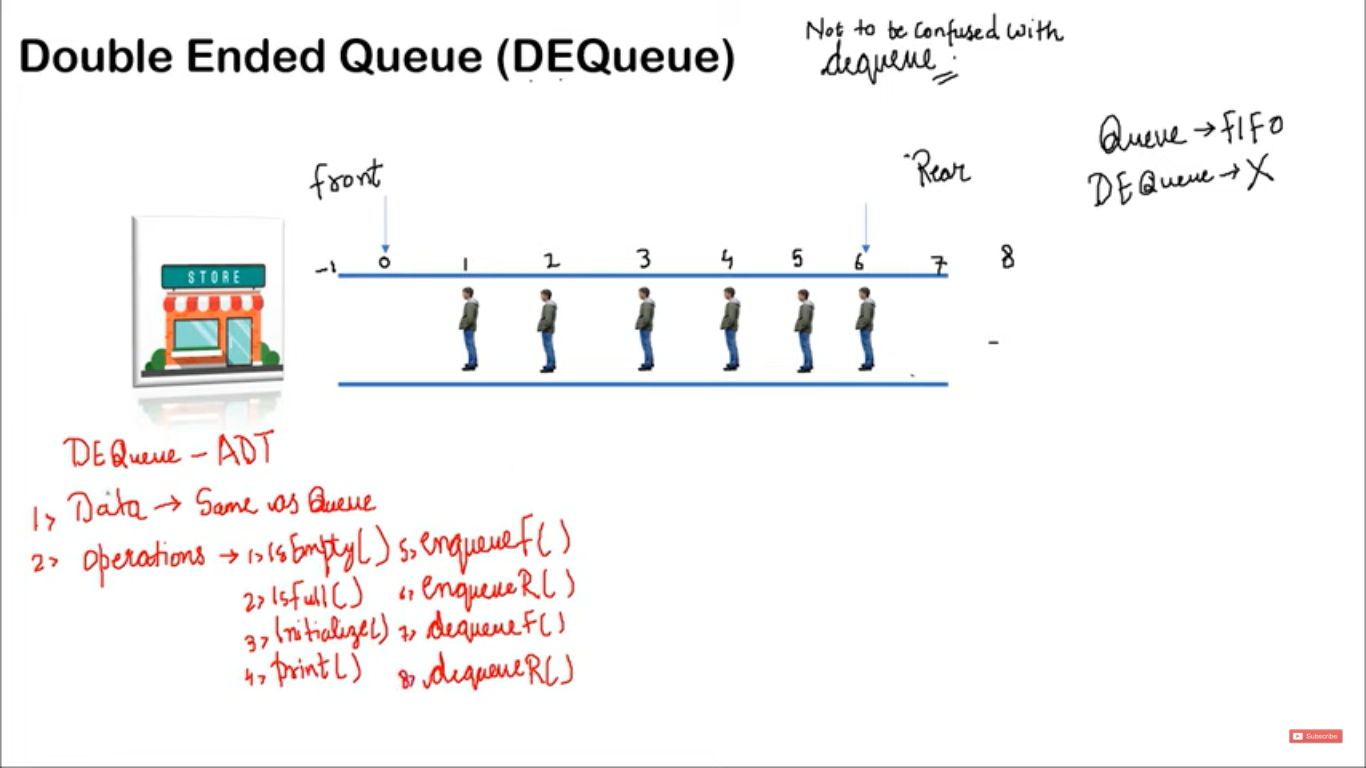 Double Ended Queue (DEQueue)
Not to be confused with
dequeue.
Queue → FIFO
DEQueue → X
front
Rear
-1 0 1 2 3 4 5 6 7 8
STORE
DEQueue - ADT
1> Data → Same as Queue
2> Operations → 1> isEmpty( ) 5> enqueueF( )
2> isfull( ) 6> enqueueR( )
3> Initialize( ) 7> dequeueF( )
4> print( ) 8> dequeueR( )
Subscribe